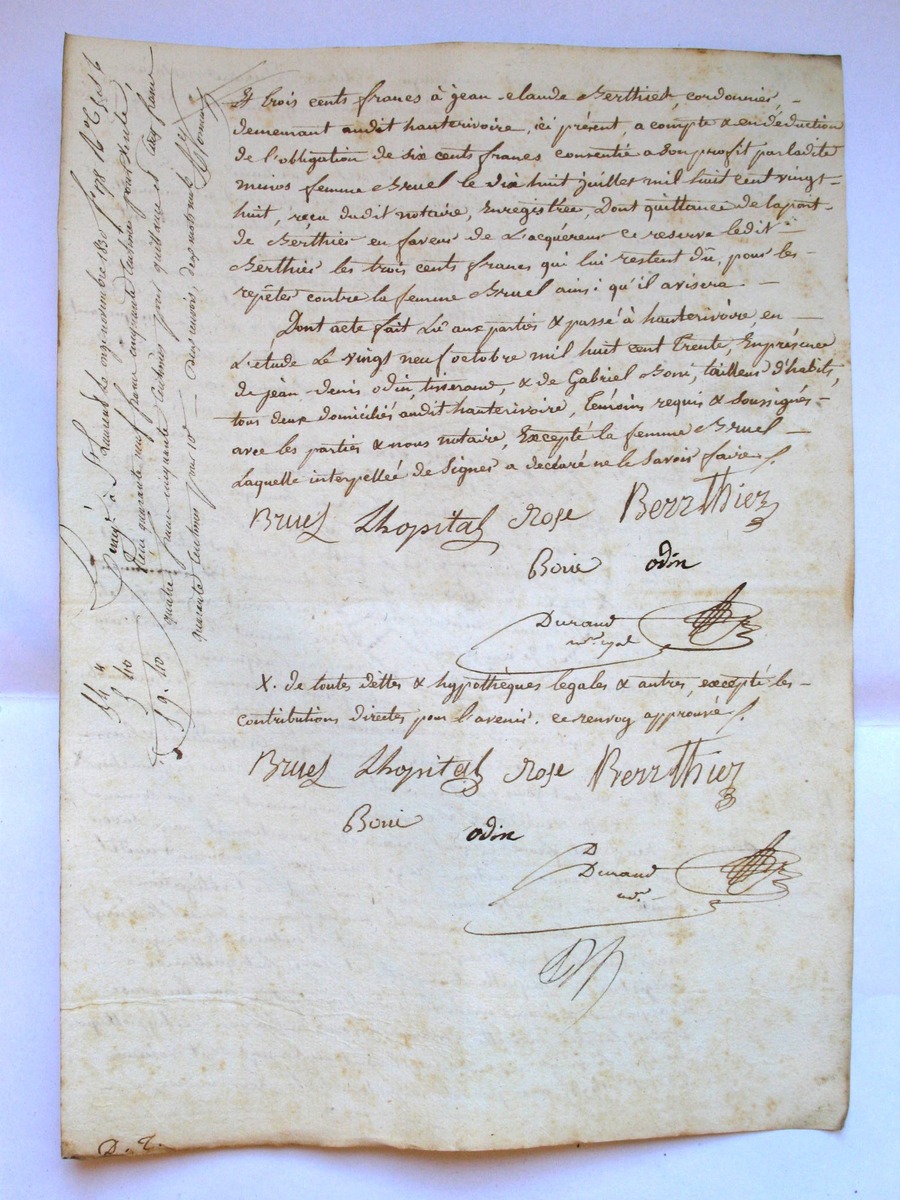 Et trois cents francs à jean-claude Berthier, cordonnier, –
demeurant audit hauterivoire, ici présent, a compte & en déduction
de l'obligation de six cents francs consentie a son profit par ladite
minos femme Bruel le dix huit juillet mil huit cent vingt-
huit, reçu dudit notaire, Enregistrée, Dont quittance de la part-
de Berthier en faveur de L'acquéreur ce reserve ledit –
Berthier les trois cents francs qui lui restent dû, pour les –
repéter contre la femme Bruel ainsi qu'il avisera. –
Dont acte fait Lu aux parties & passé à hauterivoire, en –
L'étude Le vingt neuf octobre mil huit cent trente, En présence
de jean-denis odin, tisserand, & de Gabriel Boni, tailleur d'habits,
tous deux domiciliés audit hauterivoire, témoins requis & soussignés –
avec les parties & nous notaire, Excepté la femme Bruel –
Laquelle interpellée de signer a declaré ne le savoir faire /.
Bruel Lhopital Rose Berrthier
Boni odin
Durand
nre. royal
X. de toutes dettes & hypothèques legales & autres, excepté les –
contributions directes pour l'avenir. ce renvoy approuvé /.
Bruel Lhopital Rose Berrthier
Boni
odin
Durand
nre.
D. T.
Enrgé. à St Laurent Le onze novembre 1830 fo 98 Ro
quarante neuf francs cinquante Centimes pour vente,
quatre francs cinquante Centimes pour quittance et dix francs
quarante Centimes pour 10e –
54 "
5 40
59. 40